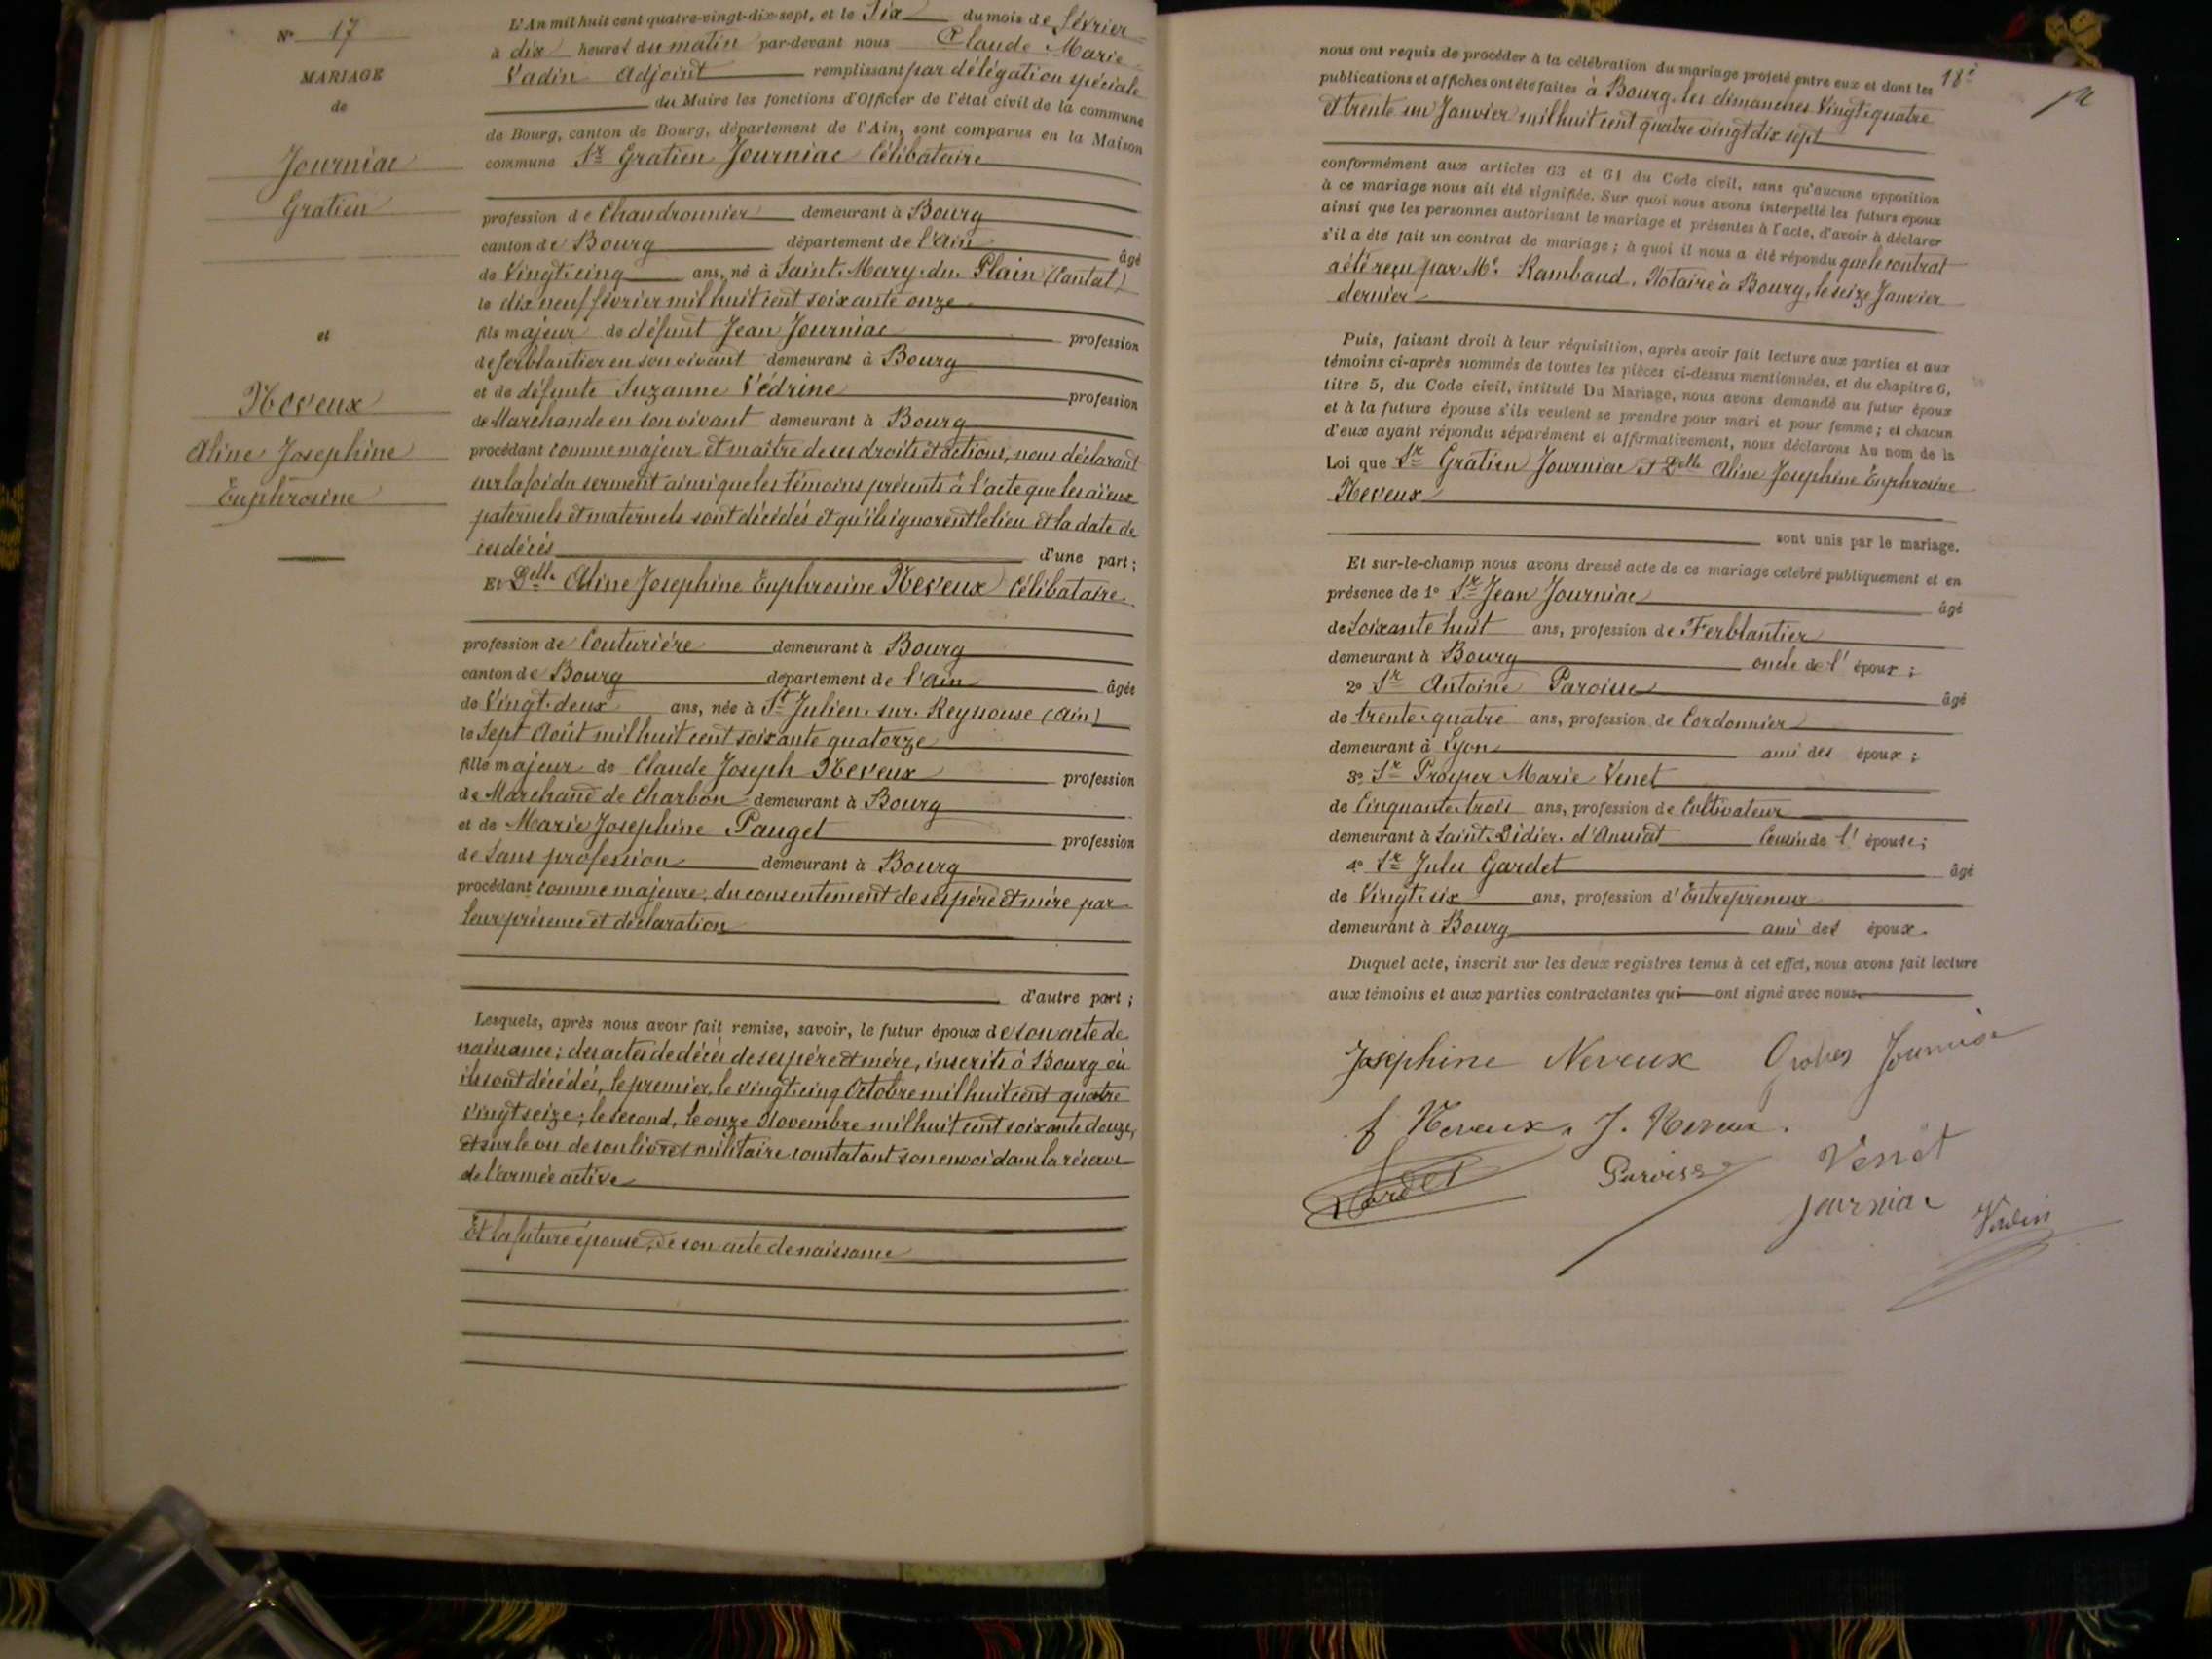 N° 17
MARIAGE
de
Journiac
Gratien
et
Neveux
Aline Josephine
Euphrosine
L'An mil huit cent quatre-vingt-dix-sept, et le Six du mois de février
à dix heures du matin par-devant nous Claude Marie
Vadin Adjoint remplissant par délégation spéciale
du Maire les fonctions d'Officier de l'état civil de la commune
de Bourg, canton de Bourg, département de l'Ain, sont comparus en la Maison
commune Sr Gratien Journiac Célibataire
profession de Chaudronnier demeurant à Bourg
canton de Bourg département de l'Ain âgé
de Vingt-cinq ans, né à Saint-Mary-du-Plain (Cantal)
le dix neuf février mil huit cent soixante onze
fils majeur de défunt Jean Journiac profession
de ferblantier en son vivant demeurant à Bourg
et de défunte Suzanne Védrine profession
de Marchande en son vivant demeurant à Bourg
procédant comme majeur et maître de ses droits et actions, nous déclarant
sur la foi du serment ainsi que les témoins présents à l'acte que les aïeux
paternels et maternels sont décédés et qu'ils ignorent le lieu et la date de
ces décès d'une part ;
Et Delle Aline Josephine Euphrosine Neveux Célibataire
profession de Couturière demeurant à Bourg
canton de Bourg département de l'Ain âgée
de Vingt-deux ans, née à St Julien-sur-Reyssouse (Ain)
le Sept Août mil huit cent soixante quatorze
fille majeur de Claude Joseph Neveux profession
de Marchand de Charbon demeurant à Bourg
et de Marie Josephine Pauget profession
de Sans profession demeurant à Bourg
procédant comme majeure, du consentement de ses père et mère par
leur présence et déclaration
d'autre part ;
Lesquels, après nous avoir fait remise, savoir, le futur époux de son acte de
naissance ; des actes de décès de ses père et mère, inscrits à Bourg où
ils sont décédés, le premier, le vingt-cinq Octobre mil huit cent quatre
vingt seize ; le second, le onze Novembre mil huit cent soixante douze,
et sur le vu de son livret militaire constatant son envoi dans la réserve
de l'armée active
Et la future épouse, de son acte de naissance
18e
nous ont requis de procéder à la célébration du mariage projeté entre eux et dont les
publications et affiches ont été faites à Bourg, les dimanches Vingt-quatre
et trente un Janvier mil huit cent quatre vingt dix sept
conformément aux articles 63 et 64 du Code civil, sans qu'aucune opposition
à ce mariage nous ait été signifiée. Sur quoi nous avons interpellé les futurs époux
ainsi que les personnes autorisant le mariage et présentes à l'acte, d'avoir à déclarer
s'il a été fait un contrat de mariage ; à quoi il nous a été répondu que le contrat
a été reçu par Me Rambaud, Notaire à Bourg, le seize Janvier
dernier
Puis, faisant droit à leur réquisition, après avoir fait lecture aux parties et aux
témoins ci-après nommés de toutes les pièces ci-dessus mentionnées, et du chapitre 6,
titre 5, du Code civil, intitulé Du Mariage, nous avons demandé au futur époux
et à la future épouse s'ils veulent se prendre pour mari et pour femme ; et chacun
d'eux ayant répondu séparément et affirmativement, nous déclarons Au nom de la
Loi que Sr Gratien Journiac et Delle Aline Josephine Euphrosine
Neveux
sont unis par le mariage.
Et sur-le-champ nous avons dressé acte de ce mariage célébré publiquement et en
présence de 1° Sr Jean Journiac âgé
de Soixante huit ans, profession de Ferblantier
demeurant à Bourg oncle de l'époux ;
2° Sr Antoine Paroisse âgé
de trente-quatre ans, profession de Cordonnier
demeurant à Lyon ami des époux ;
3° Sr Prosper Marie Venet
de Cinquante-trois ans, profession de Cultivateur
demeurant à Saint-Didier-d'Aussiat Cousin de l'épouse ;
4° Sr Jules Gardet âgé
de Vingt-six ans, profession d'Entrepreneur
demeurant à Bourg ami des époux.
Duquel acte, inscrit sur les deux registres tenus à cet effet, nous avons fait lecture
aux témoins et aux parties contractantes qui ont signé avec nous.
Joséphine Neveux Journiac
f Neveux, J. Neveux.
Gardet Paroisse Venet
Journiac Vadin